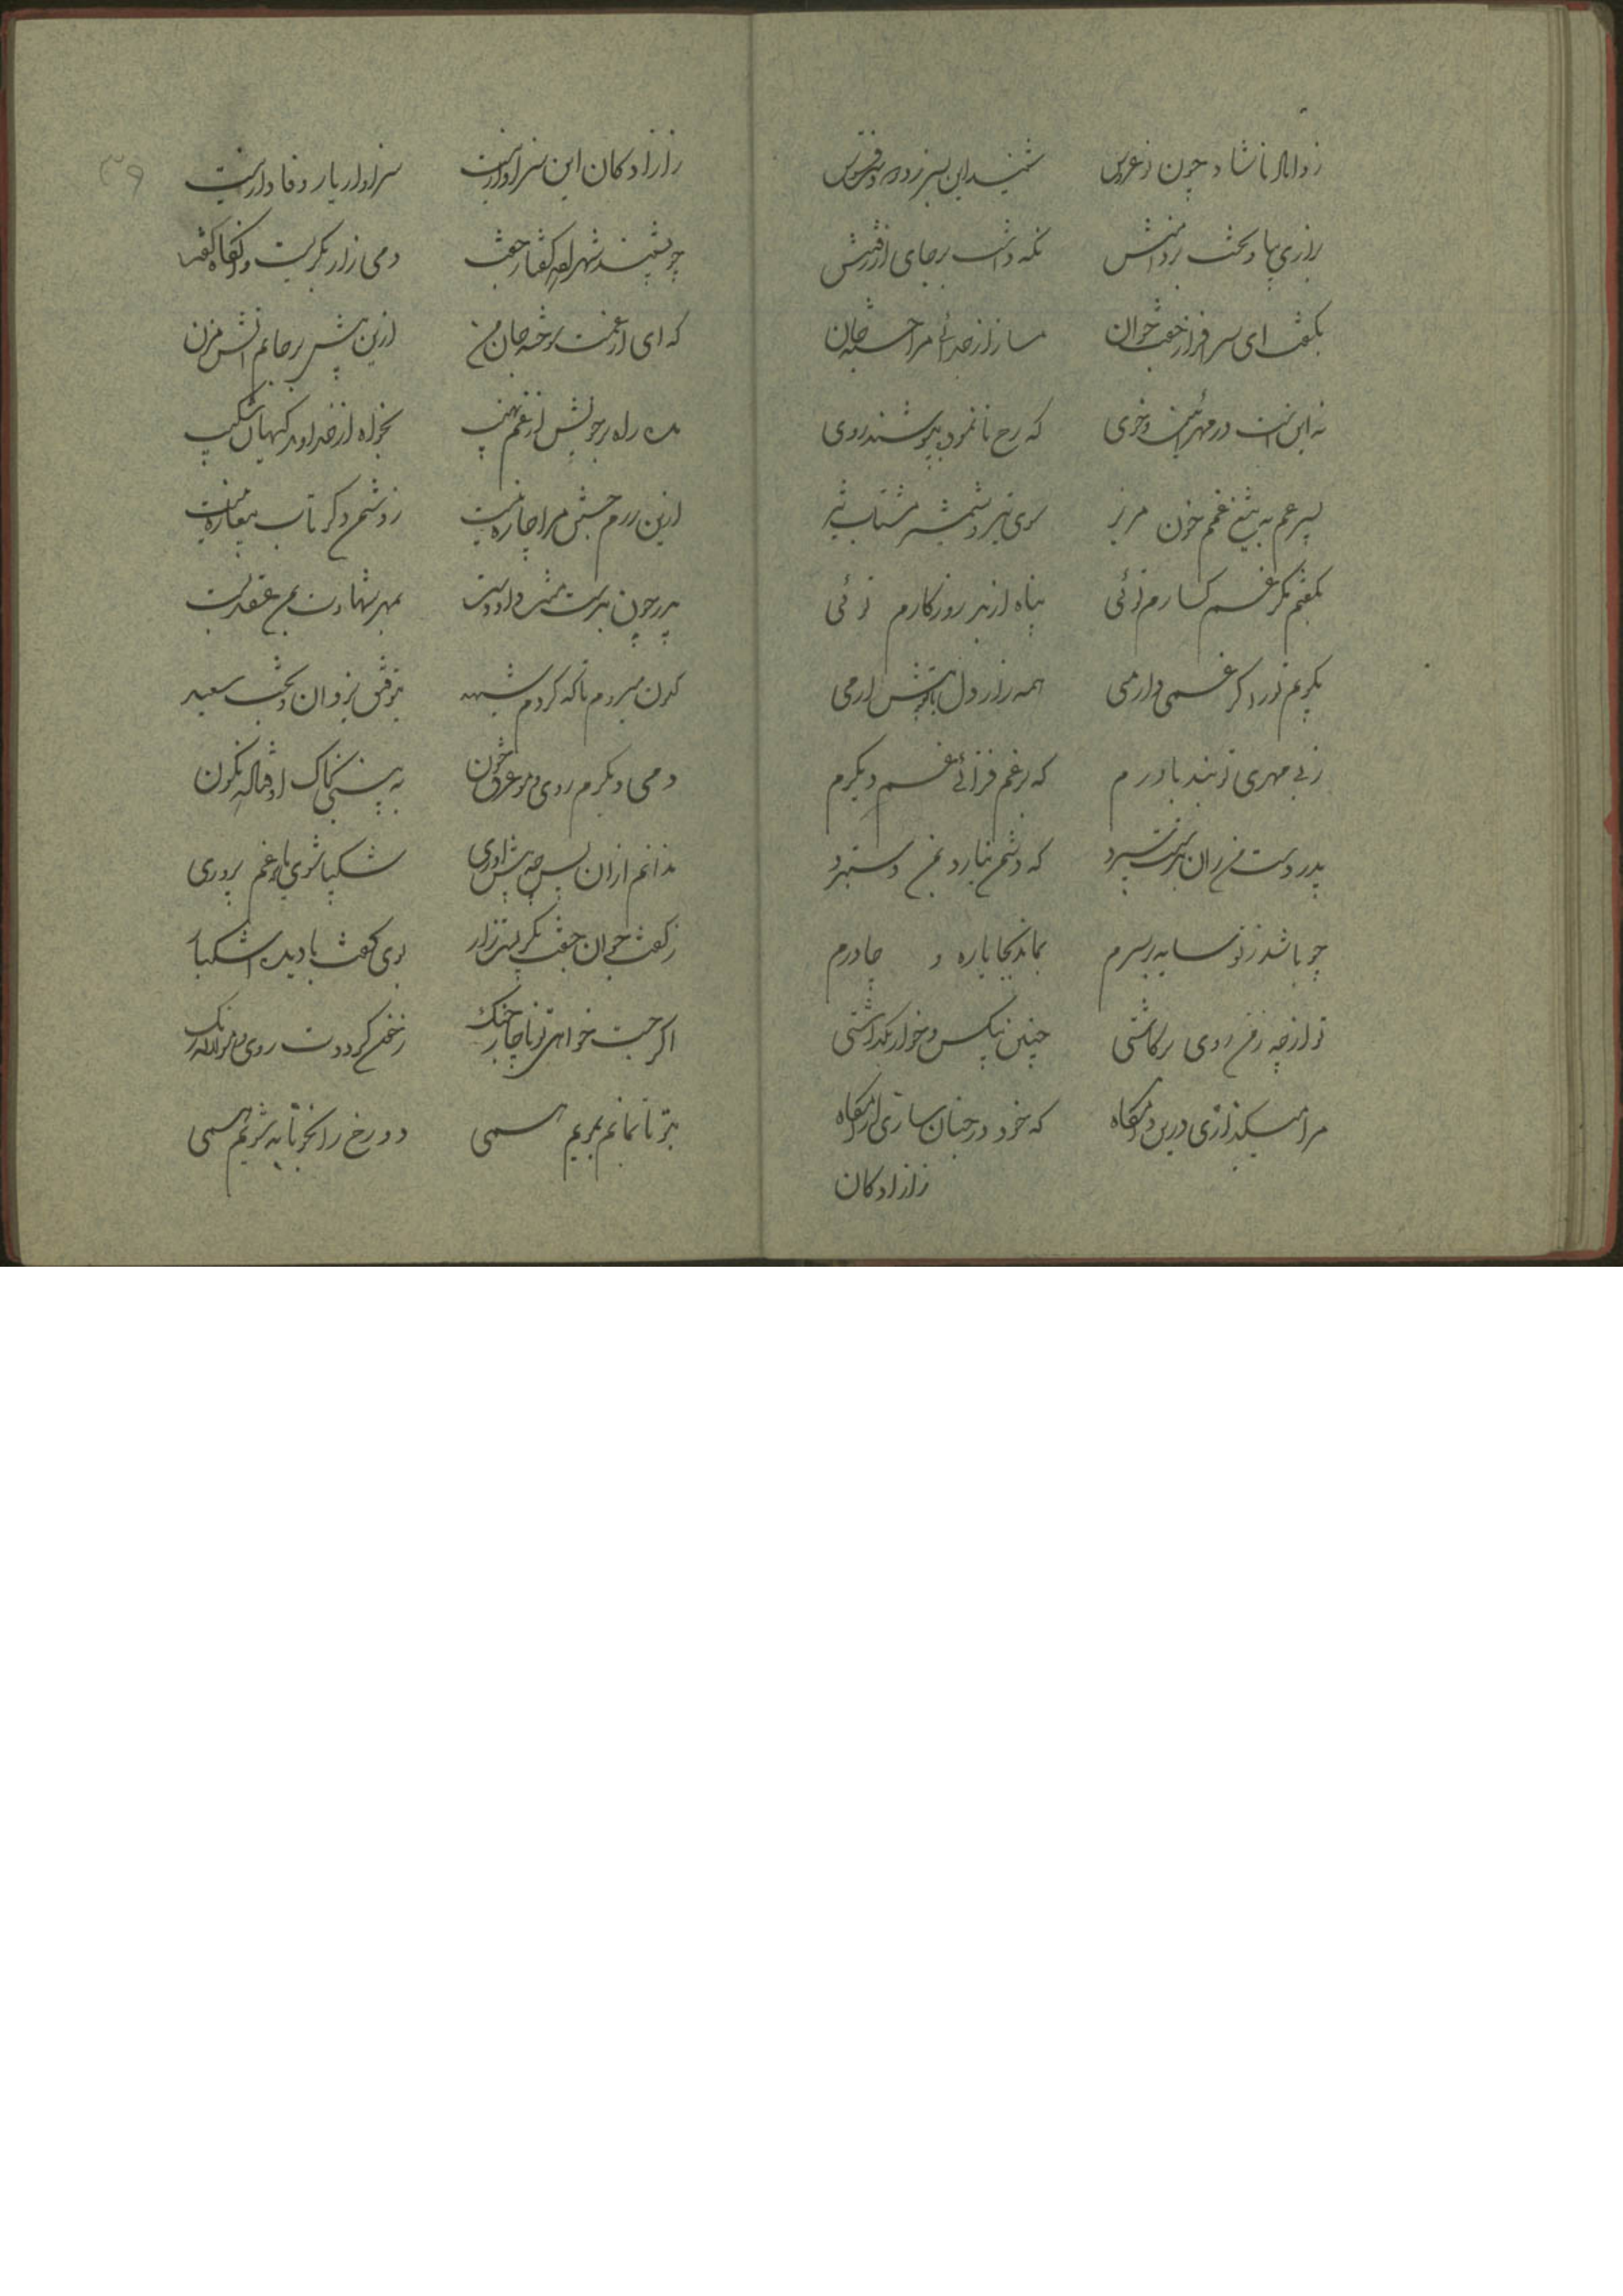 ز داماد ناشاد چون نوعروس شنید این بسی زد دریغ و فسوس
بزاری بپا وبخت بر دامنش نگه داشت بر جای از رفتنش
بگفت ای سرافراز جفت جوان مسازاز جدائی مرا خسته جان
نه این است در مهر آئین و خوی که رخ نانموده بپوشند روی
پسر عم به تیغ غمم خون مریز سوی تیر و شمشیر مشتاب تیز
بگفتم مگر غمگسارم توئی پناه از بد روزگارم توئی
بگویم ترا گر غمی دارمی همه راز دل با تو پیش آرمی
ز بی مهری تو نبد باورم که بر غم فزائی غم دیگرم
پدر دست من زان بدستت سپرد که دشمن نیارد بمن دستبرد
چو باشد ز تو سایه بر سرم بماند بجا یاره و چادرم
تو از چه ز من روی برکاشتی چنین بیکس و خوار بگذاشتی
مرا میگذاری درین دامگاه که خود در جنان سازی آرامگاه
ز آزادگان
ز آزادگان این سزاوار نیست سزاوار یار وفادار نیست
چو بشنید شهزاده گفتار جفت دمی زار بگریست و آنگاه گفت
که ای از غمت سوخته جان من ازین بیش بر جانم آتش مزن
مده راه بر خویش از غم نهیب بخواه از خداوند کیهان شکیب
ازین رزم جستن مرا چاره نیست ز دشمن دگر تاب بیغاره نیست
پدر چون بدستت مرا داد دست بمهر شهادت بمن عقد بست
کنون میروم تا که گردم شهید بتوفیق یزدان و بخت سعید
دمی دیگرم روی و مو غرق خون به بینی بخاک اوفتاده نگون
ندانم از آن پس چه پیش آوری شکیبا شوی یا که غم پروری
ز گفت جوان جفت بگریست زار بوی گفت با دیده اشکبار
اگر جست خواهی تو ناچار جنگ ز خون گرددت روی و مو لاله رنگ
بتو تا نمانم بمویم همی دو رخ را بخونابه شویم همی
۳۹